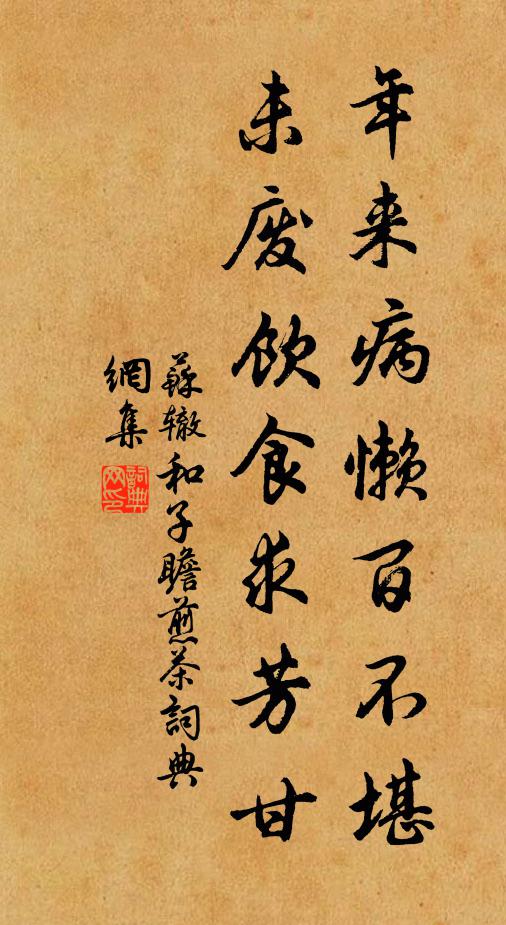 年来病懒百不堪
未废饮食求芳甘
蘇辙和子瞻煎茶詞典
網集
詞典
网印